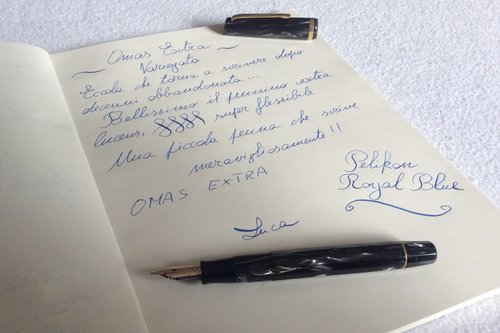 ~ Omas Extra ~
Variegata
Eccola che torna a scrivere dopo
decenni abbandonata...
Bellissimo il pennino extra
lucens, super flessibile
Una piccola penna che scrive
meravigliosamente!!
OMAS EXTRA
Pelikan
Royal Blue
Luca